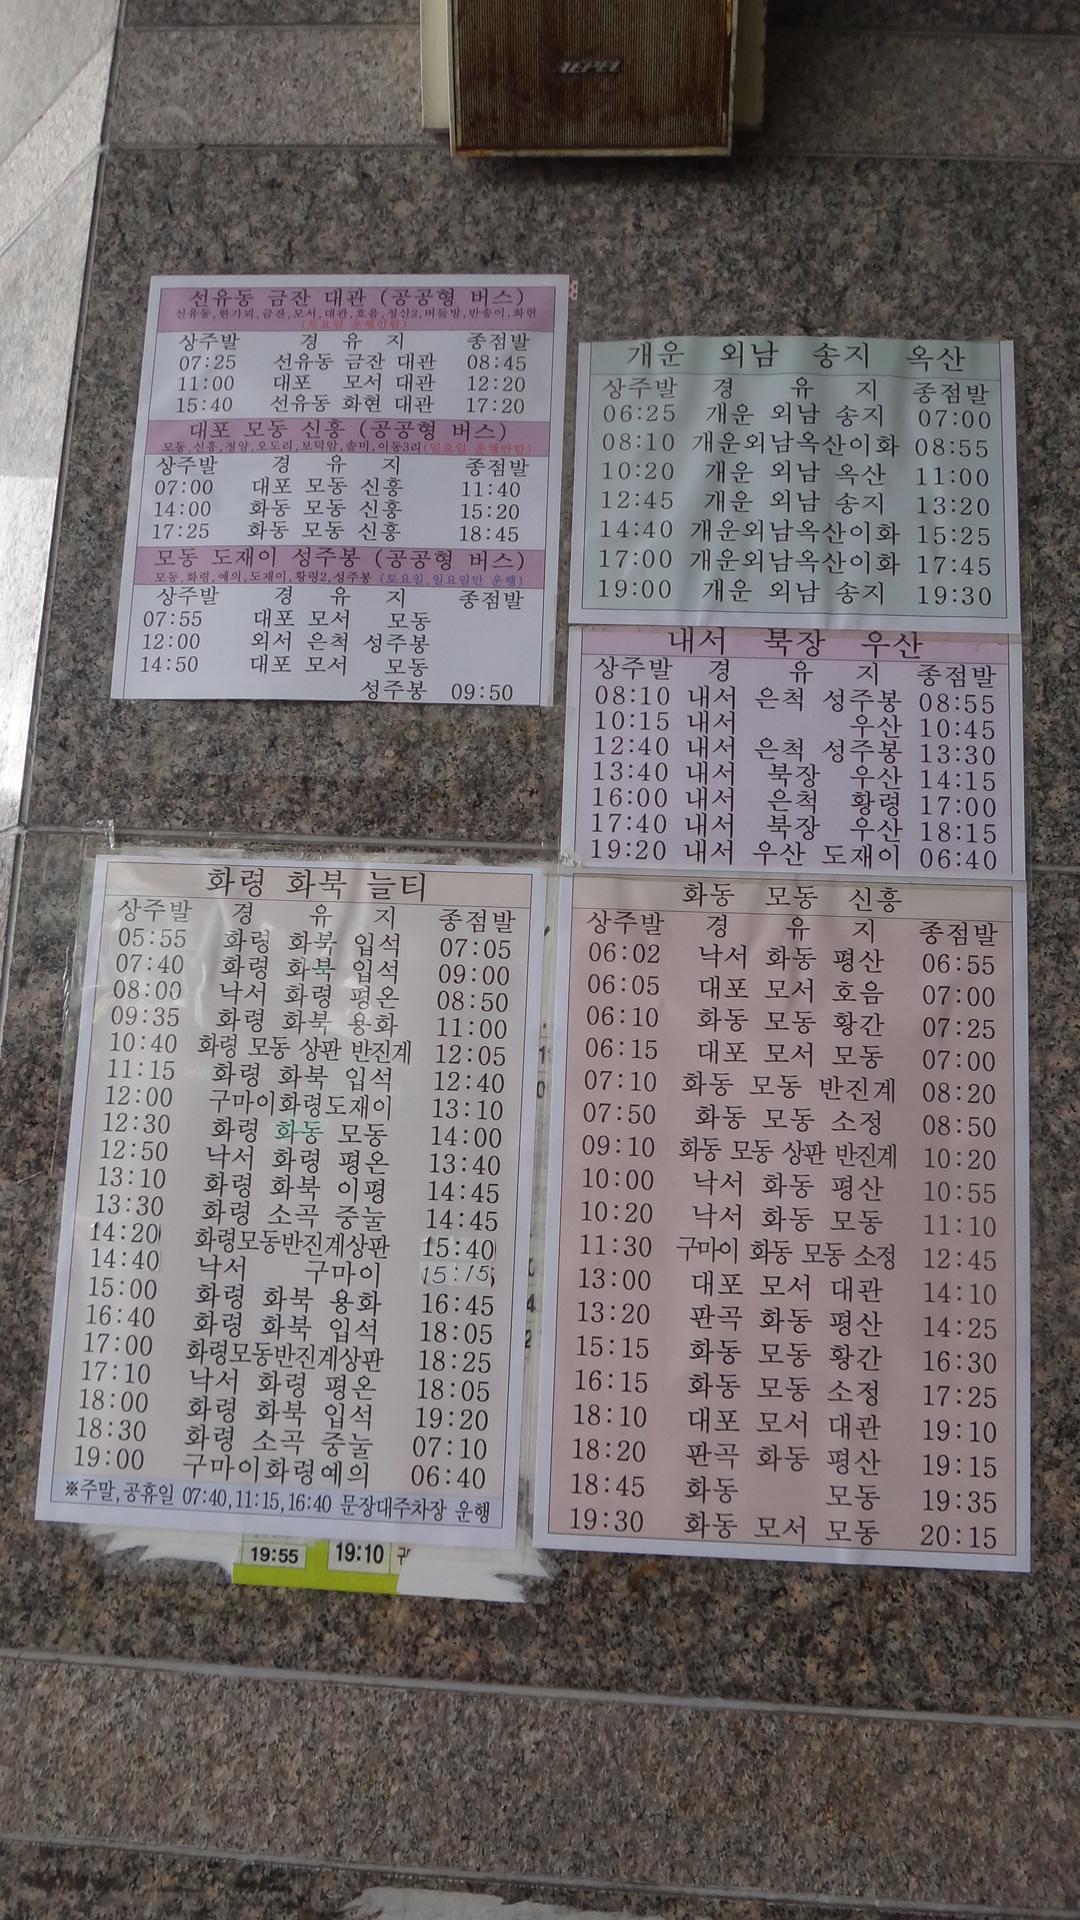 선유동 금잔 대관 (공공형 버스)
선유동,한가뫼,금잔,모서,대관,호음,정산2,버들방,반송이,화현
(토요일 운행안함)
상주발 경 유 지 종점발
07:25 선유동 금잔 대관 08:45
11:00 대포 모서 대관 12:20
15:40 선유동 화현 대관 17:20
대포 모동 신흥 (공공형 버스)
모동,신흥,정양,오도리,보덕암,솔미,이동3리(일요일 운행안함)
상주발 경 유 지 종점발
07:00 대포 모동 신흥 11:40
14:00 화동 모동 신흥 15:20
17:25 화동 모동 신흥 18:45
모동 도재이 성주봉 (공공형 버스)
모동,화령,예의,도재이,황령2,성주봉 (토요일,일요일만 운행)
상주발 경 유 지 종점발
07:55 대포 모서 모동
12:00 외서 은척 성주봉
14:50 대포 모서 모동
성주봉 09:50
개운 외남 송지 옥산
상주발 경 유 지 종점발
06:25 개운 외남 송지 07:00
08:10 개운외남옥산이화 08:55
10:20 개운 외남 옥산 11:00
12:45 개운 외남 송지 13:20
14:40 개운외남옥산이화 15:25
17:00 개운외남옥산이화 17:45
19:00 개운 외남 송지 19:30
내서 북장 우산
상주발 경 유 지 종점발
08:10 내서 은척 성주봉 08:55
10:15 내서 우산 10:45
12:40 내서 은척 성주봉 13:30
13:40 내서 북장 우산 14:15
16:00 내서 은척 황령 17:00
17:40 내서 북장 우산 18:15
19:20 내서 우산 도재이 06:40
화령 화북 늘티
상주발 경 유 지 종점발
05:55 화령 화북 입석 07:05
07:40 화령 화북 입석 09:00
08:00 낙서 화령 평온 08:50
09:35 화령 화북 용화 11:00
10:40 화령 모동 상판 반진계 12:05
11:15 화령 화북 입석 12:40
12:00 구마이화령도재이 13:10
12:30 화령 화동 모동 14:00
12:50 낙서 화령 평온 13:40
13:10 화령 화북 이평 14:45
13:30 화령 소곡 중눌 14:45
14:20 화령모동반진계상판 15:40
14:40 낙서 구마이 15:15
15:00 화령 화북 용화 16:45
16:40 화령 화북 입석 18:05
17:00 화령모동반진계상판 18:25
17:10 낙서 화령 평온 18:05
18:00 화령 화북 입석 19:20
18:30 화령 소곡 중눌 07:10
19:00 구마이화령예의 06:40
※주말,공휴일 07:40,11:15,16:40 문장대주차장 운행
19:55 19:10
화동 모동 신흥
상주발 경 유 지 종점발
06:02 낙서 화동 평산 06:55
06:05 대포 모서 호음 07:00
06:10 화동 모동 황간 07:25
06:15 대포 모서 모동 07:00
07:10 화동 모동 반진계 08:20
07:50 화동 모동 소정 08:50
09:10 화동 모동 상판 반진계 10:20
10:00 낙서 화동 평산 10:55
10:20 낙서 화동 모동 11:10
11:30 구마이 화동 모동 소정 12:45
13:00 대포 모서 대관 14:10
13:20 판곡 화동 평산 14:25
15:15 화동 모동 황간 16:30
16:15 화동 모동 소정 17:25
18:10 대포 모서 대관 19:10
18:20 판곡 화동 평산 19:15
18:45 화동 모동 19:35
19:30 화동 모서 모동 20:15